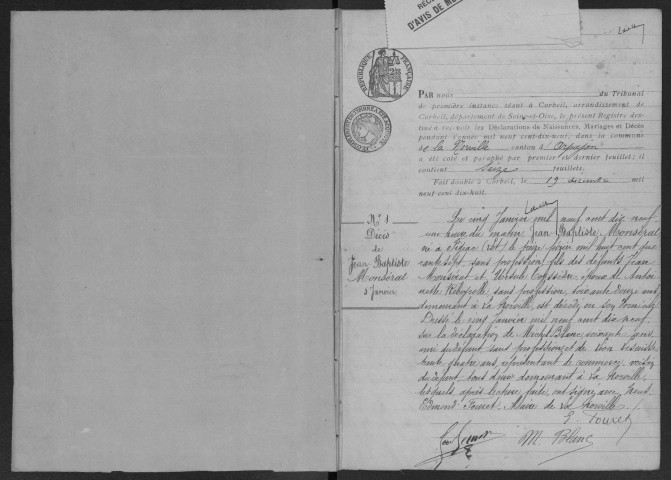 D'AVIS DE
RÉPUBLIQUE FRANÇAISE
PAR nous du Tribunal
de première instance séant à Corbeil, arrondissement de
Corbeil, département de Seine-et-Oise, le présent Registre des-
tiné à recevoir les Déclarations de Naissances, Mariages et Décès
pendant l'année mil neuf cent dix-neuf, dans la commune
de la Norville canton d'Arpajon
a été coté et paraphé par premier et dernier feuillet; il
contient Seize feuillets.
Fait double à Corbeil, le 19 décembre mil
neuf cent dix-huit.
N° 1
Décès
de
Jean Baptiste
Monséral
5 Janvier
Le cinq Janvier mil neuf cent dix neuf
une heure du matin Jean Baptiste Monséral
né à Figeac (Lot) le seize mil huit cent qua
rante sept, sans profession, fils des défunts Jean
Monséral et Ursule époux de Antoi
nette sans profession, soixante onze ans
demeurant à La Norville, est décédé en son domicile
Dressé le cinq Janvier mil neuf cent dix neuf
sur la déclaration de Michel Blanc soixante ans
ami du défunt, sans profession, et de Léon
trente quatre ans, représentant de commerce, voisin
du défunt, tous deux demeurant à La Norville,
lesquels après lecture faite, ont signé avec Nous
Edmond Touret, Maire de La Norville
E. Touret
M. Blanc